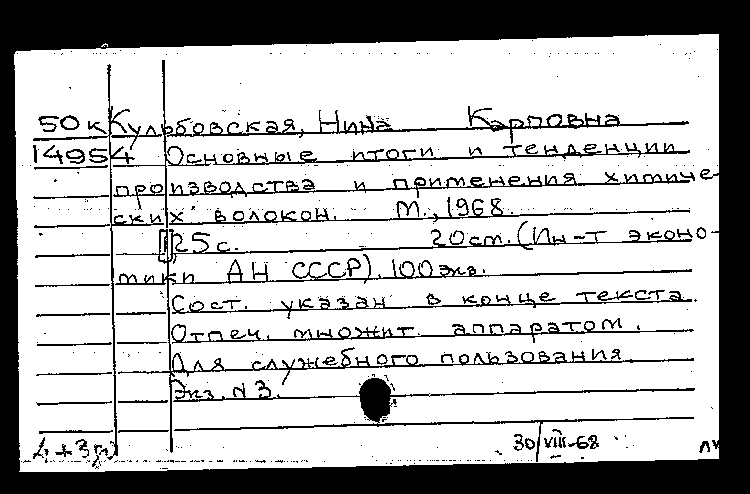 50к Кульбовская, Нина Карповна
14954 Основные итоги и тенденции
производства и применения химиче-
ских волокон. М., 1968.
25 с. 20 см. (Ин-т эконо-
мики АН СССР). 100 экз.
Сост. указан в конце текста.
Отпеч. множит. аппаратом.
Для служебного пользования.
Экз. N 3.
30/VIII-68